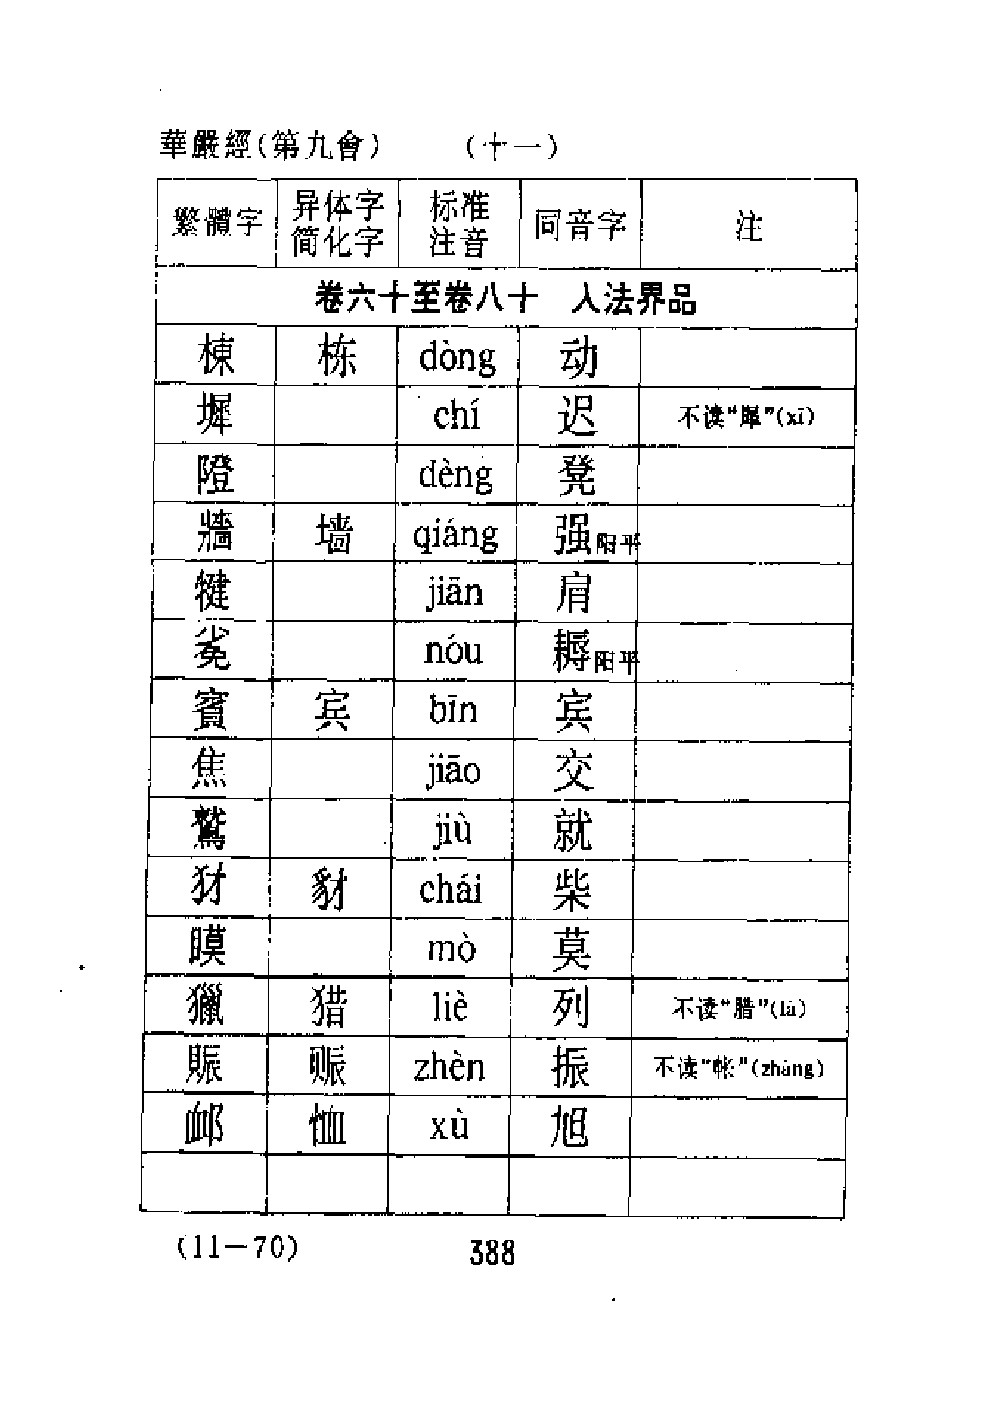 華嚴經(第九會) (十一)
繁體字 异体字简化字 标准注音 同音字 注
卷六十至卷八十 入法界品
棟 栋 dòng 动
墀 chí 迟 不读“犀”(xī)
隥 dèng 凳
牆 墙 qiáng 强阳平
犍 jiān 肩
㝹 nóu 耨阳平
賓 宾 bīn 宾
焦 jiāo 交
鷲 jiù 就
犲 豺 chái 柴
瞙 mò 莫
獵 猎 liè 列 不读“腊”(là)
賑 赈 zhèn 振 不读“帐”(zhàng)
卹 恤 xù 旭
(11-70) 388